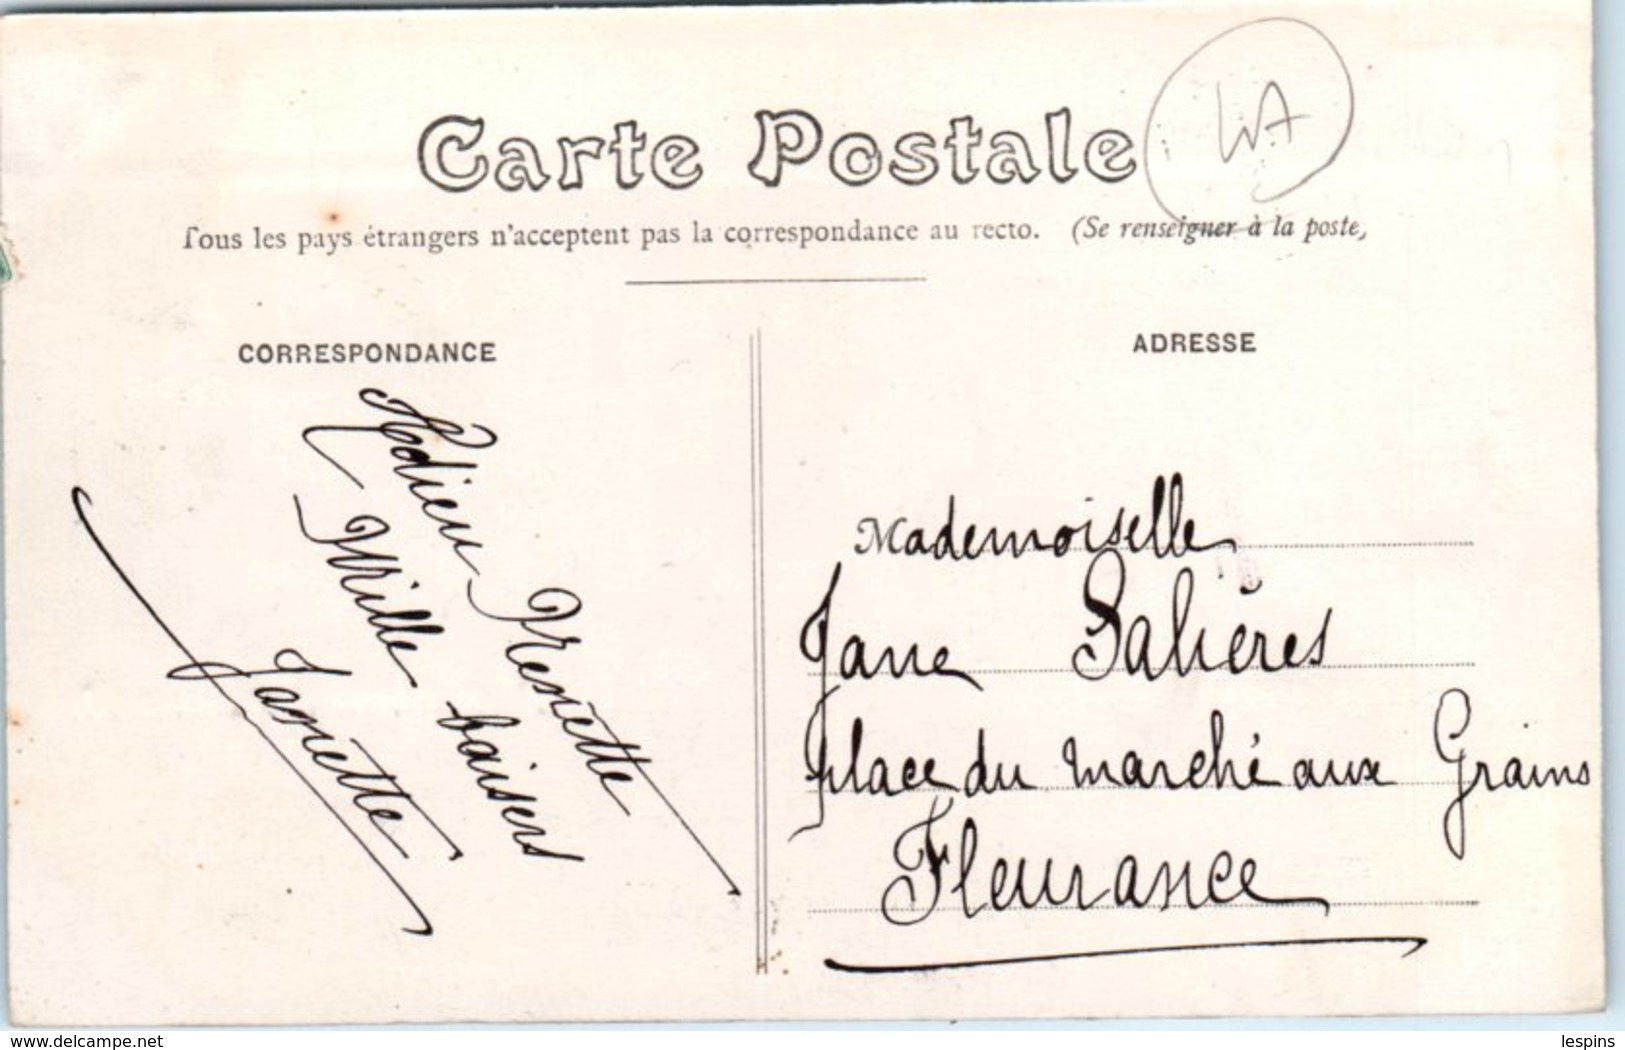 Carte Postale
WA
Tous les pays étrangers n'acceptent pas la correspondance au recto. (Se renseigner à la poste,
CORRESPONDANCE
Adieu
Mille baisers
Jasnette
ADRESSE
Mademoiselle
Jane Salières
place du marché aux Grains
Fleurance
www.delcampe.net
lespins